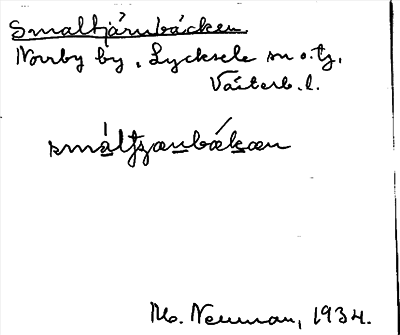 Smaltjärnbäcken
Norrby by, Lycksele sn o. tg.
Västerb. l.
smáltʒanbǽkæn
M. Neuman, 1934.